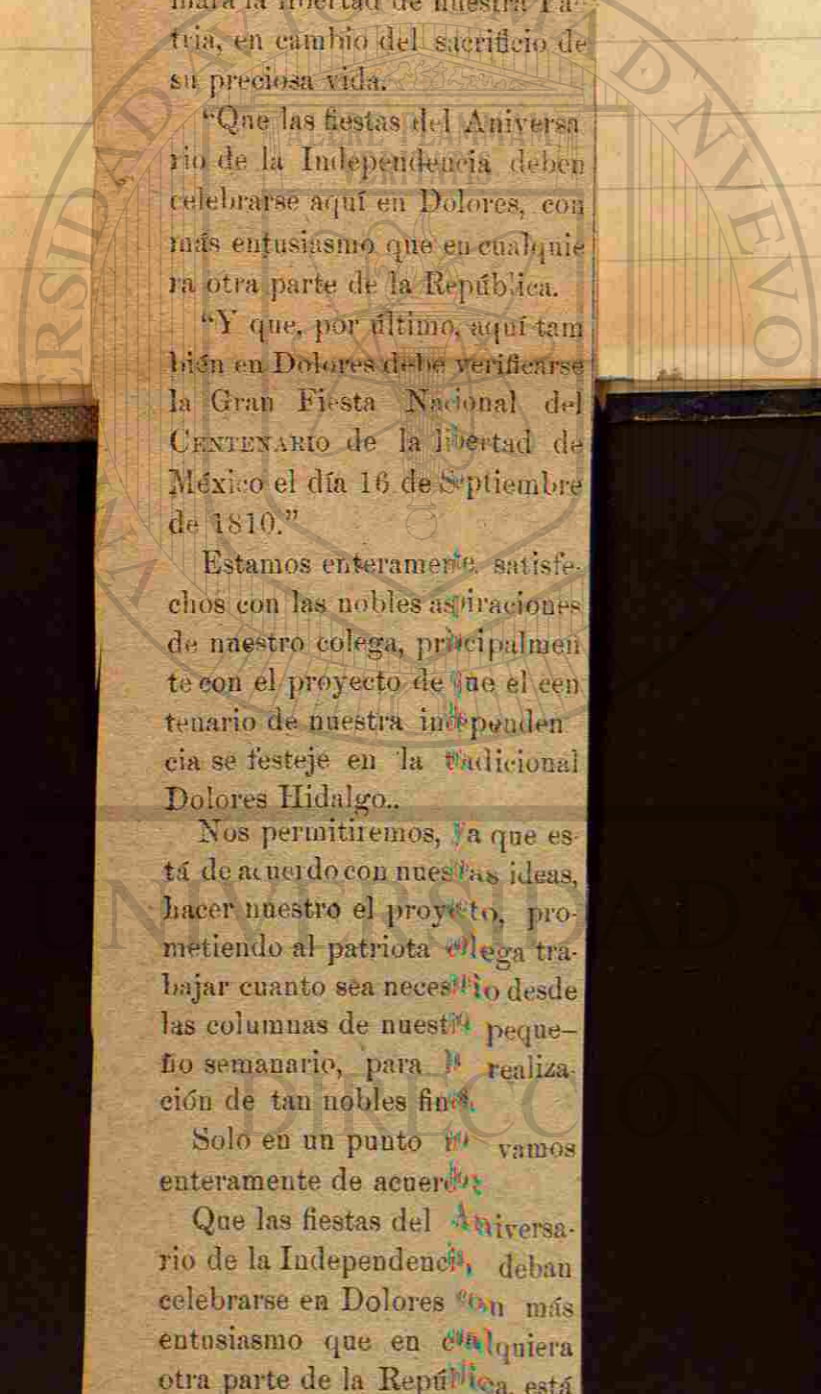 mara la libertad de nuestra Pa-
tria, en cambio del sacrificio de
su preciosa vida.
"Que las fiestas del Aniversa
rio de la Independencia deben
celebrarse aquí en Dolores, con
más entusiasmo que en cualquie
ra otra parte de la República.
"Y que, por último, aquí tam
bién en Dolores debe verificarse
la Gran Fiesta Nacional del
CENTENARIO de la libertad de
México el día 16 de Septiembre
de 1810."
Estamos enteramente satisfe-
chos con las nobles aspiraciones
de nuestro colega, principalmen
te con el proyecto de que el cen
tenario de nuestra independen
cia se festeje en la tradicional
Dolores Hidalgo..
Nos permitiremos, ya que es-
tá de acuerdo con nuestras ideas,
hacer nuestro el proyecto, pro-
metiendo al patriota colega tra-
bajar cuanto sea necesario desde
las columnas de nuestro peque-
ño semanario, para la realiza-
ción de tan nobles fines.
Solo en un punto no vamos
enteramente de acuerdo:
Que las fiestas del Aniversa-
rio de la Independencia, deban
celebrarse en Dolores con más
entusiasmo que en cualquiera
otra parte de la República, está
UNIVERSIDAD A
DE NUEVO
DIRECCIÓN